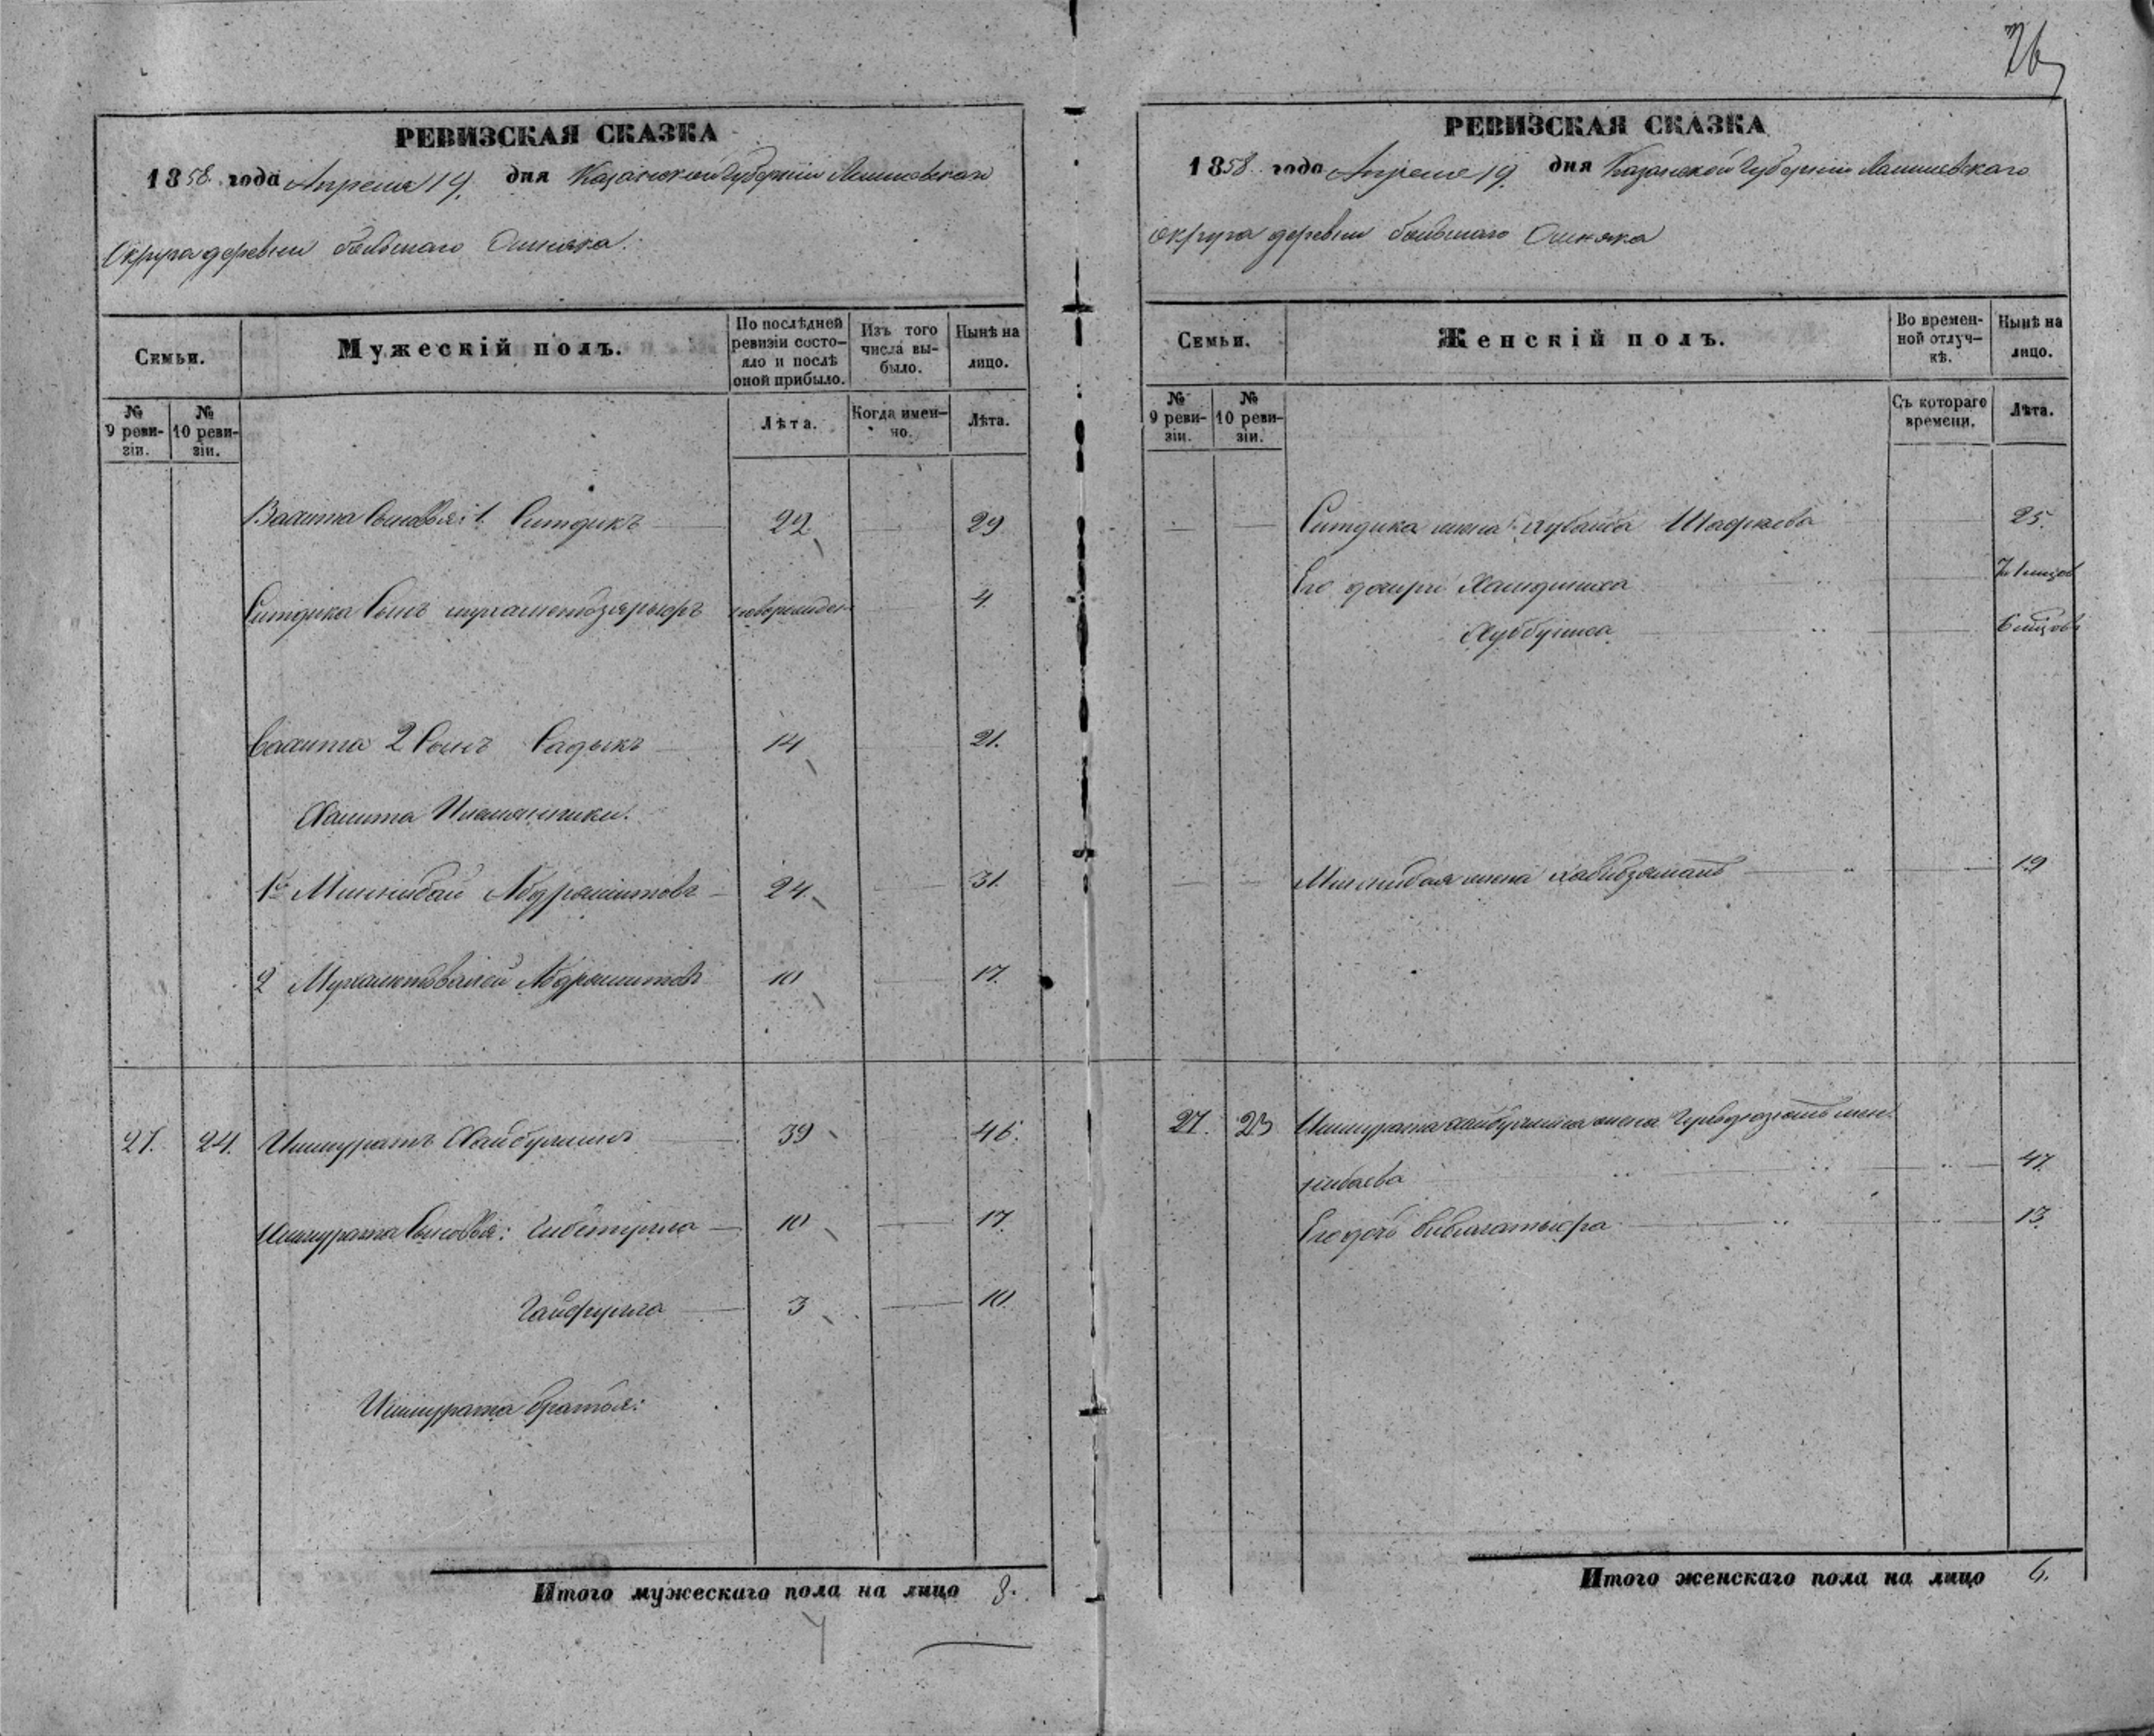 26
РЕВИЗСКАЯ СКАЗКА
1858 года Апреля 19 дня Казанской Губернии Лаишевскаго
Округа деревни большаго Ошняка.
Семьи.
Мужескій полъ.
По послѣдней ревизіи состояло и послѣ оной прибыло.
Изъ того числа выбыло.
Нынѣ на лицо.
№ 9 ревизіи.
№ 10 ревизіи.
Лѣта.
Когда именно.
Лѣта.
Вахита Сыновья: 1. Ситдикъ 22 29
Ситдика Сынъ 4.
Вахита 2 Сынъ Садыкъ 14 21.
Хамита Племянники.
1й Миннибай Абдрашитовъ 24. 31.
2 Мухаметвалей Абдрашитовъ 10 17.
27. 24. Ишмуратъ Хайбуллинъ 39 46.
Ишмурата Сыновья: 10 17.
Гайфулла 3 10.
Ишмурата братья:
Итого мужескаго пола на лицо 8.
РЕВИЗСКАЯ СКАЗКА
1858 года Апреля 19 дня Казанской Губернии Лаишевскаго
округа деревни большаго Ошняка
Семьи.
Женскій полъ.
Во временной отлучкѣ.
Нынѣ на лицо.
№ 9 ревизіи.
№ 10 ревизіи.
Съ котораго времени.
Лѣта.
Ситдика жена 25.
Его дочери
Миннибая жена Хабибзямалъ 19
27. Ишмурата Хайбуллина жена
нибаева 47.
Его дочь 13.
Итого женскаго пола на лицо 6.